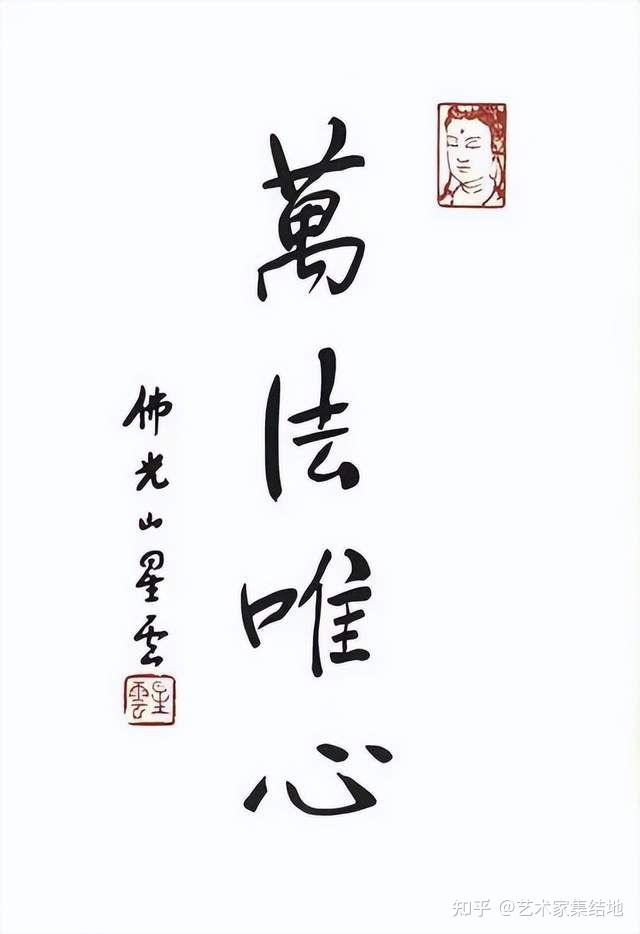 萬法唯心
佛光山星雲
星雲
知乎 @艺术家集结地